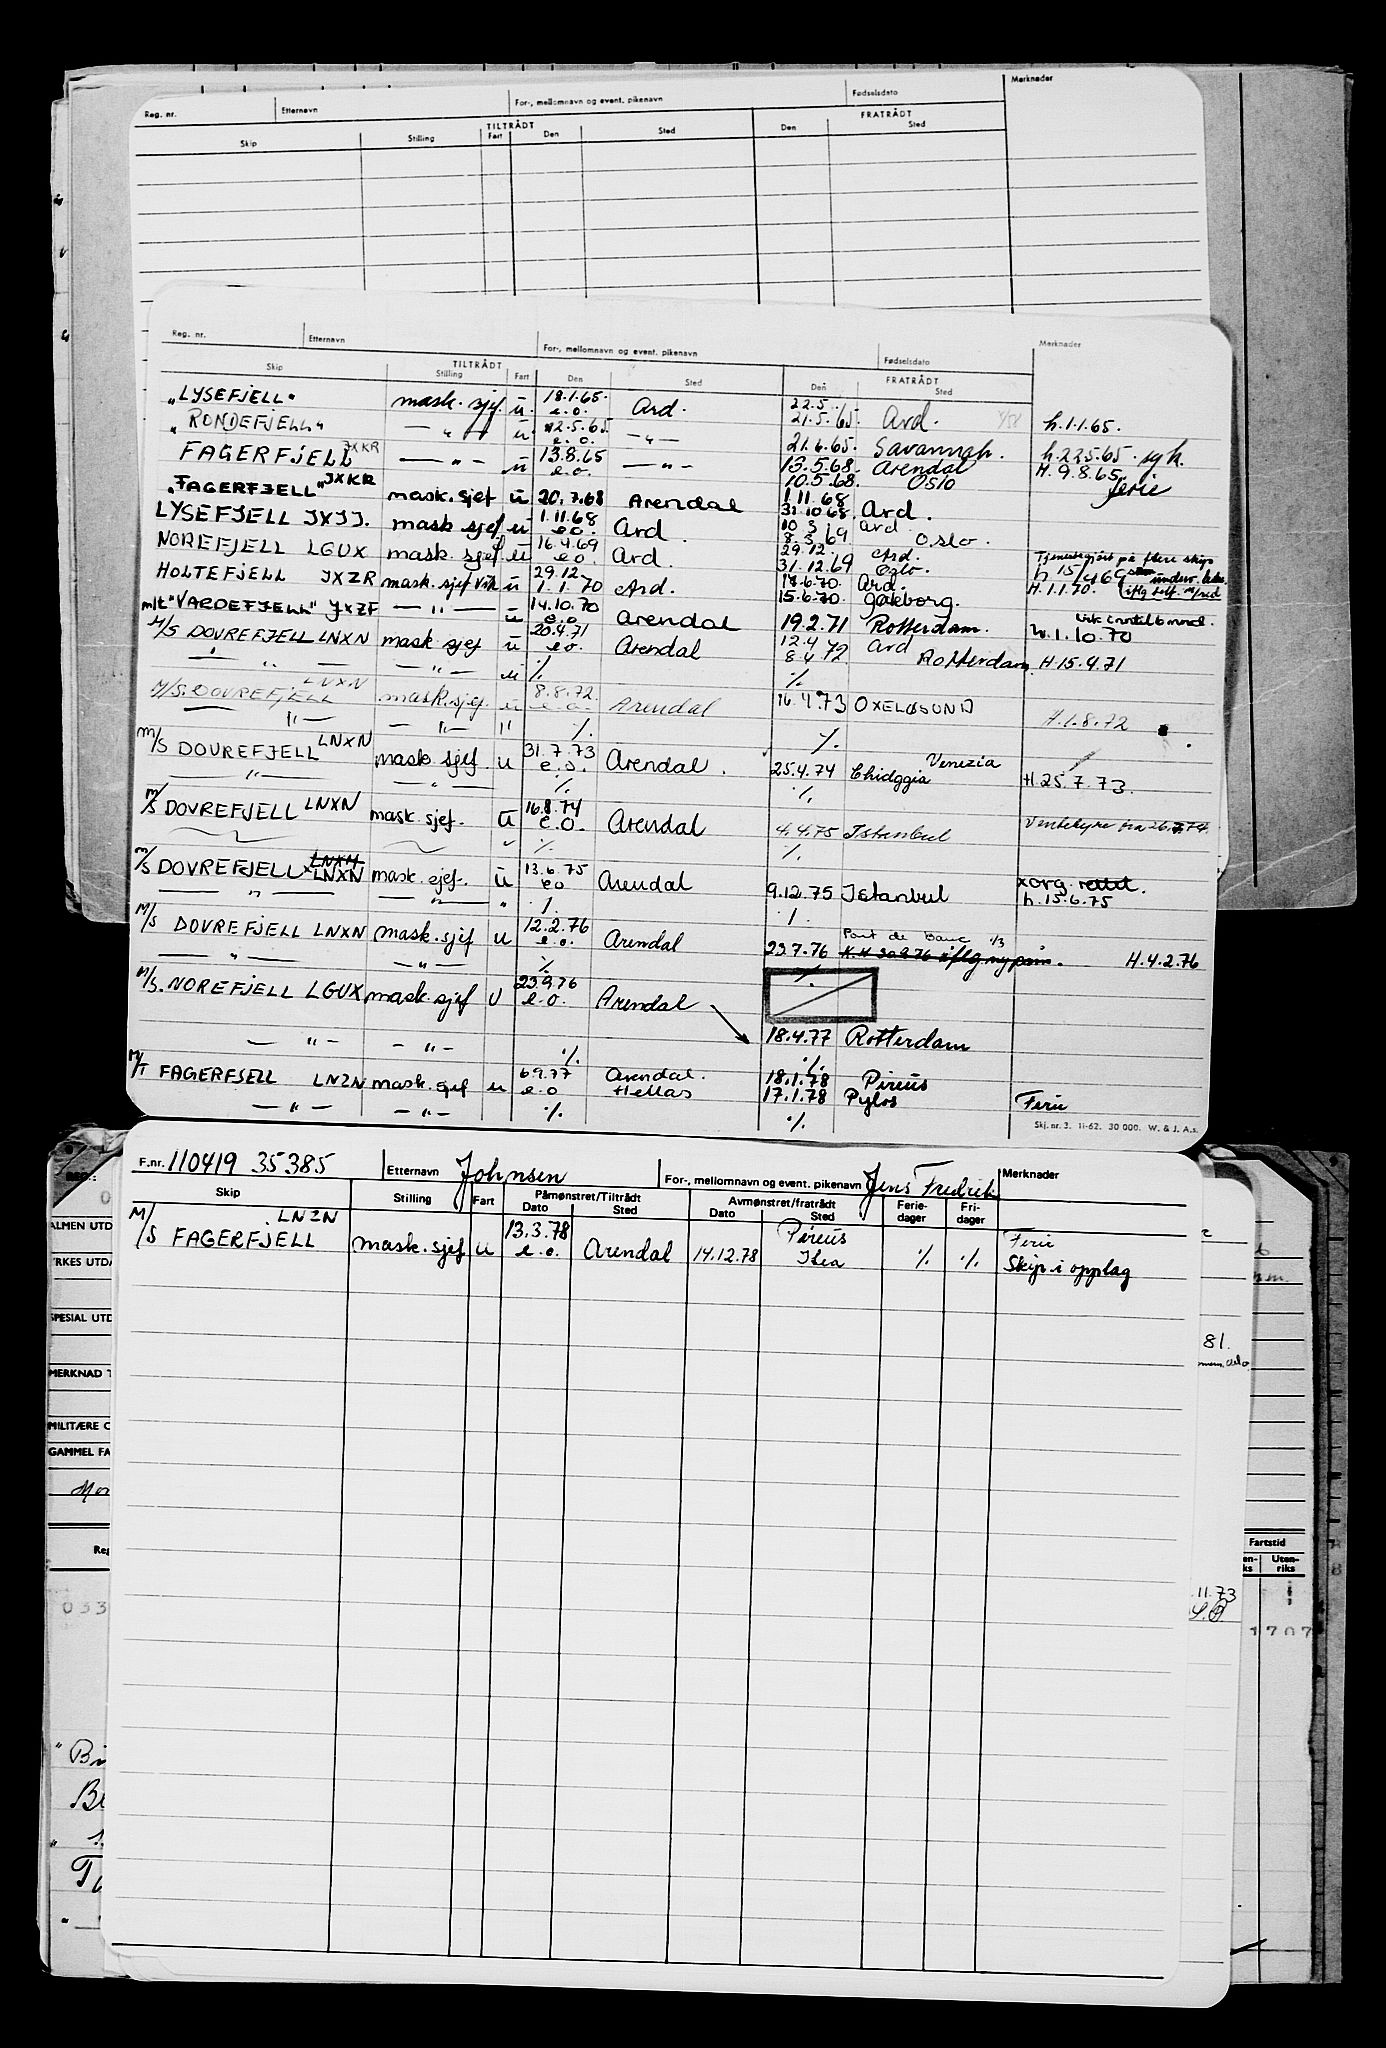 Reg. nr. Etternavn For-, mellomnavn og event. pikenavn Fødselsdato Merknader
TILTRÅDT FRATRÅDT
Skip Stilling Fart Den Sted Den Sted
Reg. nr. Etternavn For-, mellomnavn og event. pikenavn Fødselsdato Merknader
TILTRÅDT FRATRÅDT
Skip Stilling Fart Den Sted Den Sted
"LYSEFJELL" mask. sjef. u. 18.1.65. e.o. Ard. 22.5. 21.5.65. Ard. h.1.1.65.
"RONDEFJELL" — " — u. 2.5.65 e.o. — " — 21.6.65. Savannah. h.22.5.65. syk.
FAGERFJELL JXKR — " — u 13.8.65 e.o. — " — 13.5.68. Arendal 10.5.68. Oslo H. 9.8.65. ferie
"FAGERFJELL" JXKR mask. sjef u 20.7.68 Arendal 1.11.68 31.10.68 Ard.
LYSEFJELL JXJJ. mask. sjef u 1.11.68 e.o. Ard. 10.3 8.3.69 Ard. Oslo.
NOREFJELL LGUX mask. sjef u 16.4.69 e.o. Ard. 29.12. 31.12.69 Ard. Oslo. Tjenestegjort på flere skip
HOLTEFJELL JXZR mask. sjef vik u 29.12. 1.1.70 Ard. 18.6.70. 15.6.70. Ard. Gøteborg. H.1.1.70.
m/t "VARDEFJELL" JXZF — " — u 14.10.70 e.o. Arendal 19.2.71 Rotterdam. h.1.10.70
M/S DOVREFJELL LNXN mask. sjef u 20.4.71 e.o. Arendal 12.4 8.4.72 Ard Rotterdam. H.15.4.71
— " — — " — u % %
M/S. DOVREFJELL LNXN mask. sjef. u 8.8.72. e.o. Arendal 16.4.73 OXELØSUND H.1.8.72
— " — — " — " % %
M/S DOVREFJELL LNXN mask. sjef. u 31.7.73 e.o. Arendal. 25.4.74 Venezia Chidggia H.25.7.73.
— " — — " — % %
M/S DOVREFJELL LNXN mask. sjef. u 16.8.74 e.o. Arendal 4.4.75 Istanbul Ventehyre fra 26.7.74.
% %
M/S DOVREFJELL LNXN mask. sjef. u 13.6.75 e.o Arendal 9.12.75 Istanbul xorg. rettet. h.15.6.75
— " — — " — " % %
M/S DOVREFJELL LNXN mask. sjef u 12.2.76 e.o. Arendal 23.7.76 Port de Bouc 1/3 H.4.2.76
— " — — " — % %
M/S. NOREFJELL LGUX mask. sjef u 23.9.76 e.o. Arendal 18.4.77 Rotterdam
— " — — " — % %
M/T FAGERFJELL LNZN mask. sjef u 6.9.77 e.o Arendal. Hellas 18.1.78 17.1.78 Pireus Pylos Ferie
— " — — " — % %
Skj. nr. 3. 11-62. 30 000. W. & J. A.s.
F.nr. 110419 35385 Etternavn Johnsen For-, mellomnavn og event. pikenavn Jens Fredrik Merknader
Skip Stilling Fart Påmønstret/Tiltrådt Dato Sted Avmønstret/fratrådt Dato Sted Ferie-dager Fri-dager
M/S FAGERFJELL LNZN mask. sjef u 13.3.78 e.o. Arendal 14.12.78 Pireus Itea % % Ferie Skip i opplag
SPESIAL UTD
MERKNAD T
MILITÆRE O
GAMMEL FA
81.
Fartstid
Uten-riks
11.73
033
1707